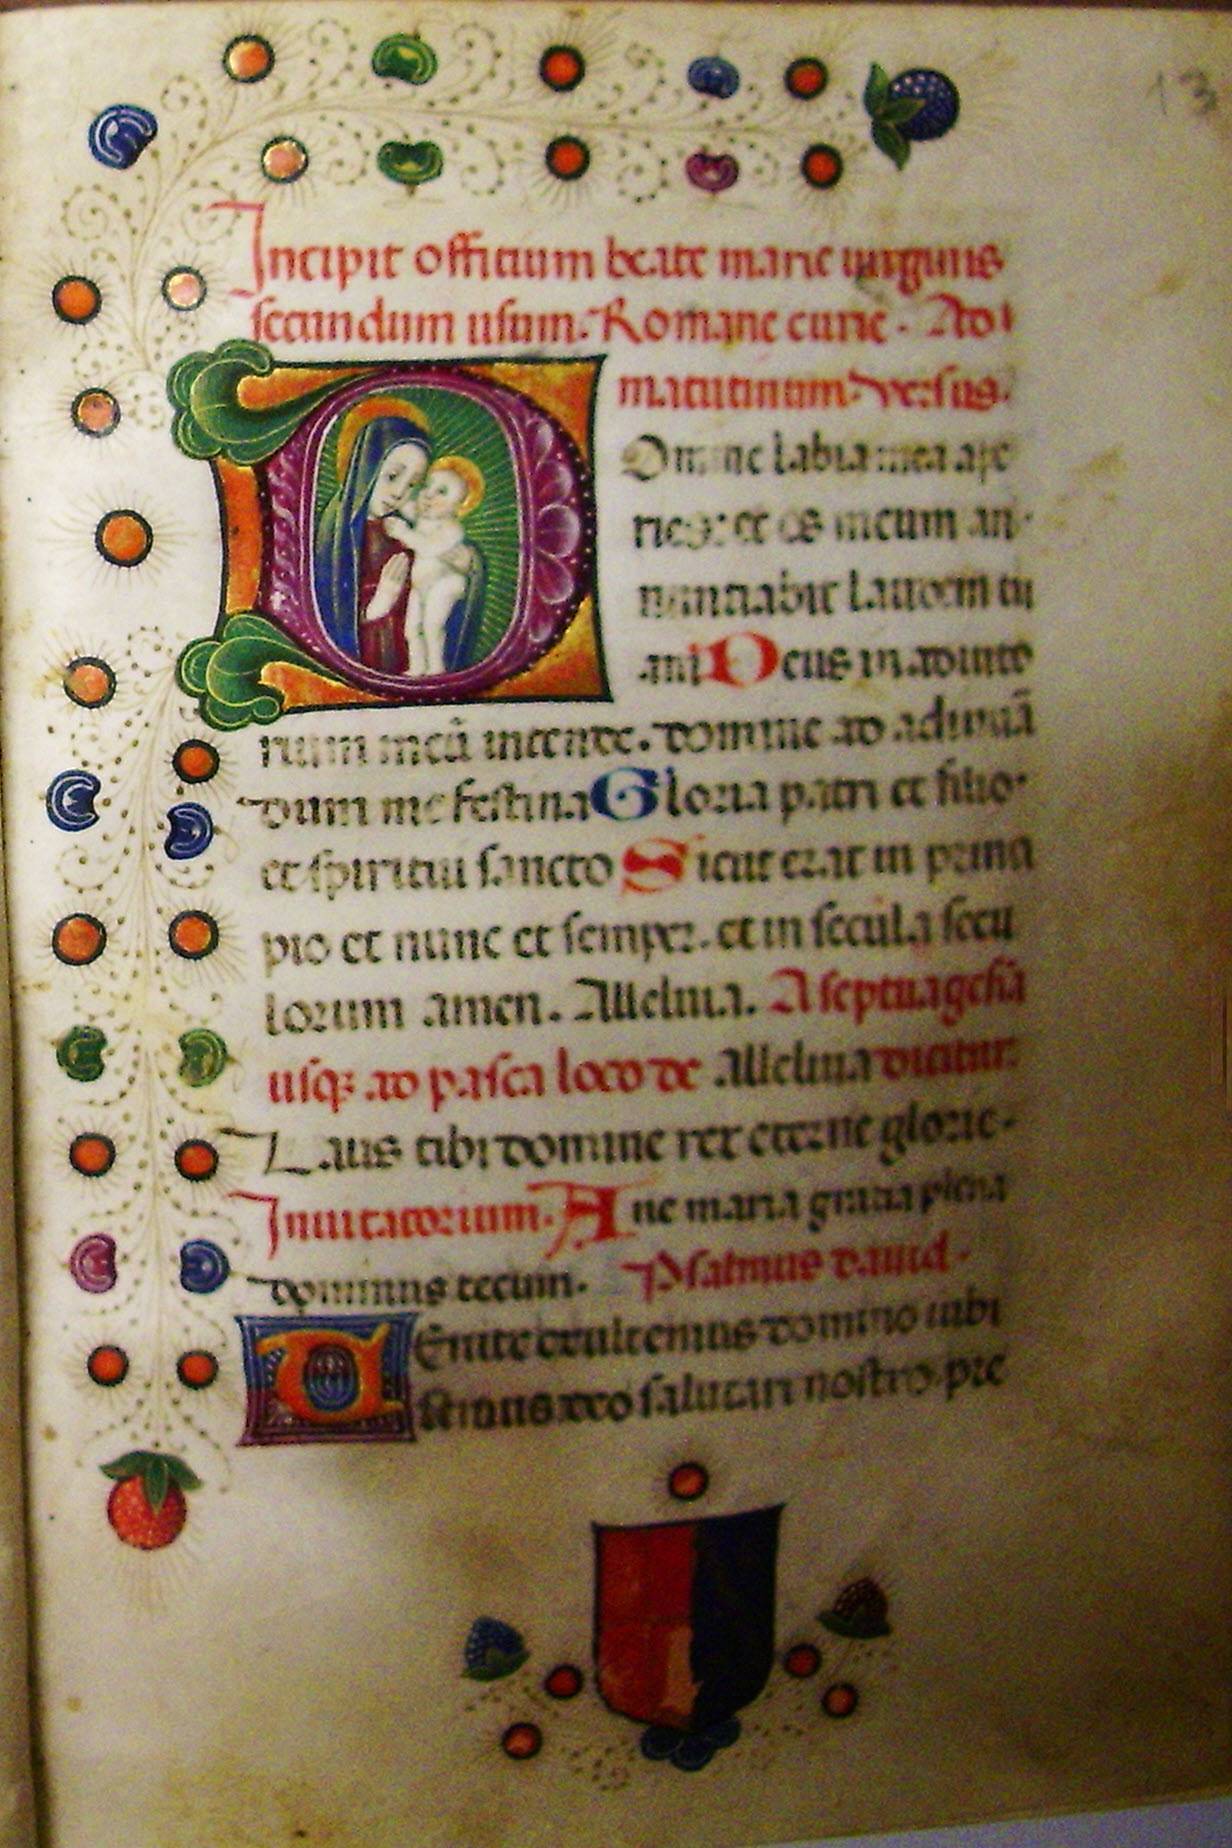 13
Incipit officium beate marie uirginis
secundum usum. Romane curie. Ad
matutinum. Versus.
Domine labia mea ape
ries: et os meum an
nuntiabit laudem tu
am Deus in adiuto
rium meũ intende. domine ad adiuuã
dum me festina Gloria patri et filio.
et spiritui sancto Sicut erat in princi
pio et nunc et semper. et in secula secu
lorum amen. Alleluia. A septuagesiã
usq; ad pasca loco de Alleluia dicitur.
Laus tibi domine rex eterne glorie.
Inuitatorium. Aue maria gratia plena
dominus tecum. Psalmus dauid.
UEnite exultemus domino iubi
lemus deo salutari nostro. pre